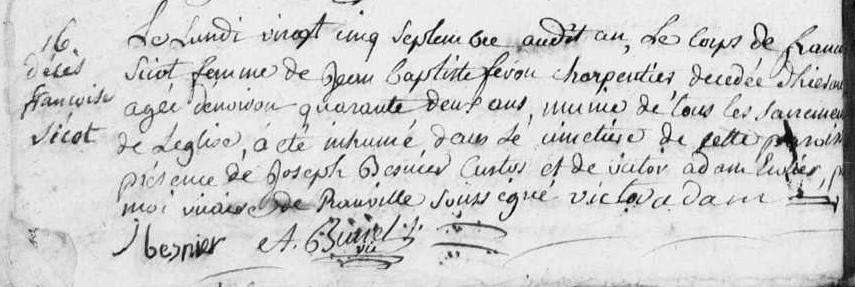 16
décès
françoise
sicot
Le Lundi vingt cinq septembre audit an, Le corps de franc
Sicot femme de Jean baptiste fevou charpentier decedée d'hier
agée denviron quarante deux ans, munie de tous les sacremen
de Leglise, a été inhumé dans Le cimetiere de cette paroiss
présence de Joseph Besnier Custos et de victor adam
moi vicaire de Rauville soussigné victor adam
J besnier A. Burnel
vic